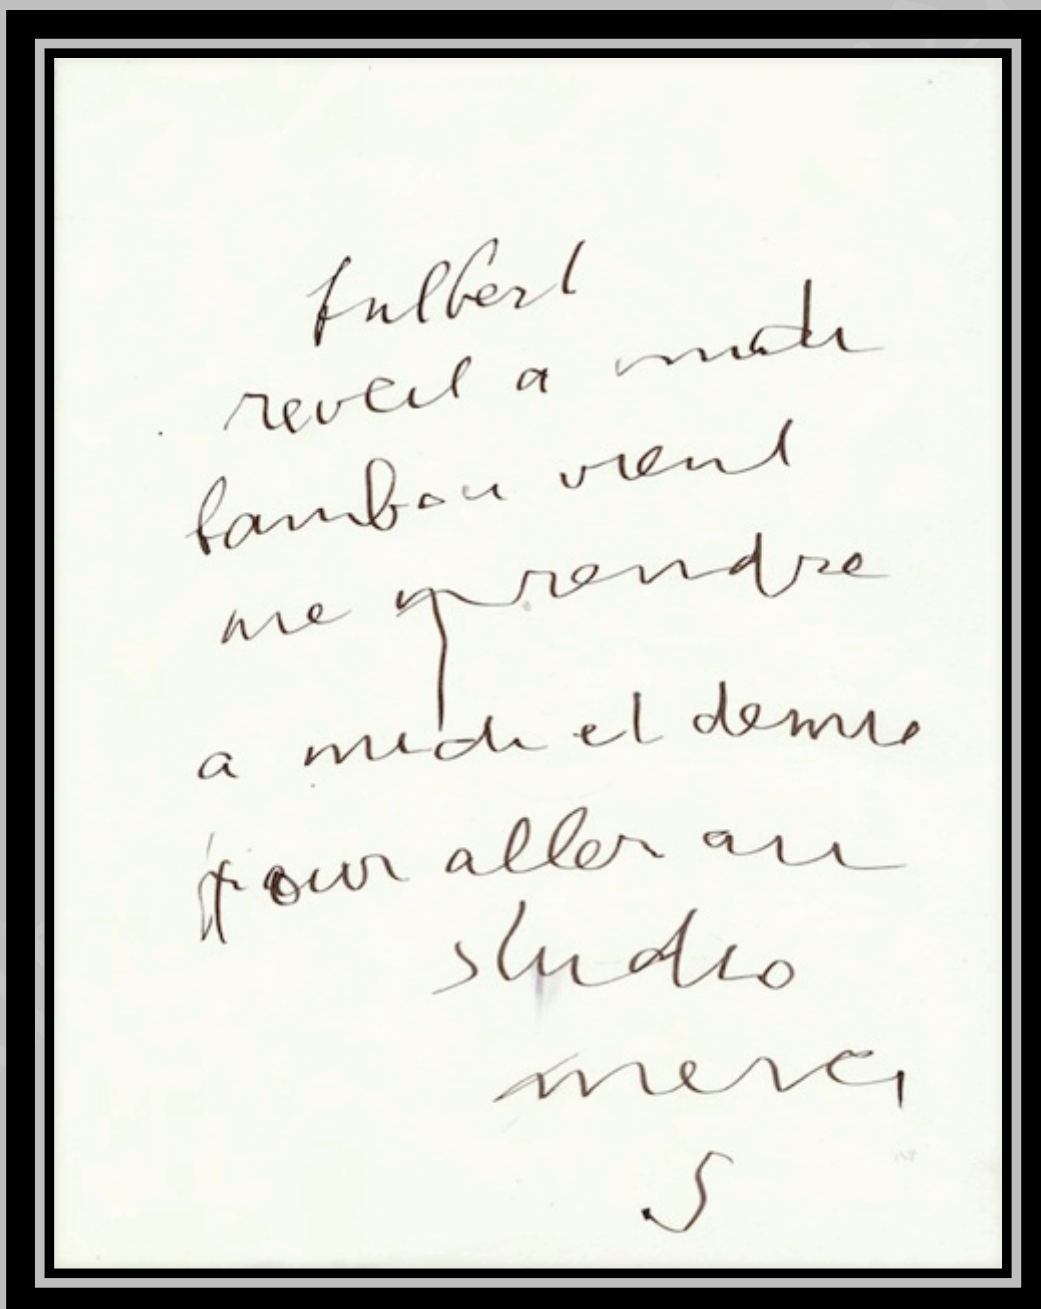 fulbert
reveil a midi
bambou vient
me prendre
a midi et demie
pour aller au
studio
merci
S